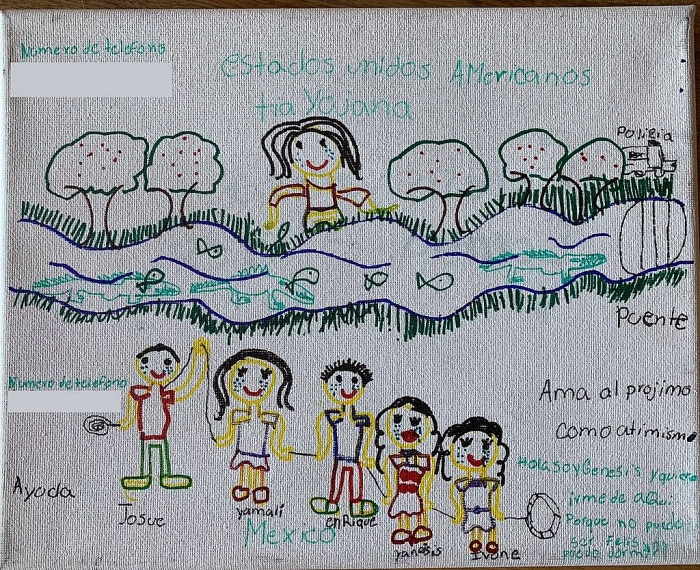 Numero de telefono
Estados unidos AMericanos
tia Yojana
Policia
Puente
Numero de telefono
Ama al projimo
Como atimismo
Hola soy Genesis y quiero
irme de aqui.
Porque no puedo
ser Felis
puedo dormir
Ayuda
Josue
yamali
enRique
yanosis
Ivene
Mexico